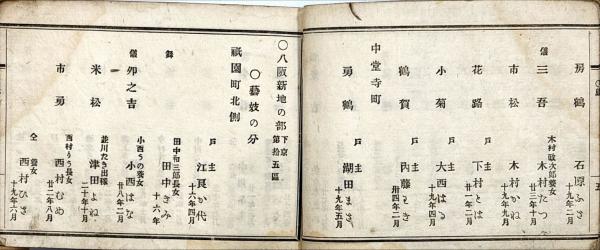 房鶴
石原ふさ
十九年二月
儀三吾
木村敬次郎養女
木村たつ
廿三年十月
市松
木村かね
十九年九月
花路
戸主
下村とは
卅年二月
小菊
戸主
大西はる
十九年四月
鶴賀
戸主
内藤とき
卅四年二月
中堂寺町
勇鶴
戸主
湖田まさ
十九年五月
〇八阪新地の部
下京第拾五區
〇藝妓の分
祇園町北側
戸主
江良か代
十六年
田中和三郎長女
田中きみ
十六年
儀卯之吉
小西うの養女
小西はな
廿八年二月
米松
並川たき出稼
津田よね
二十年十月
市勇
西村りう長女
西村むめ
廿二年八月
仝養女
西村ひさ
十九年六月